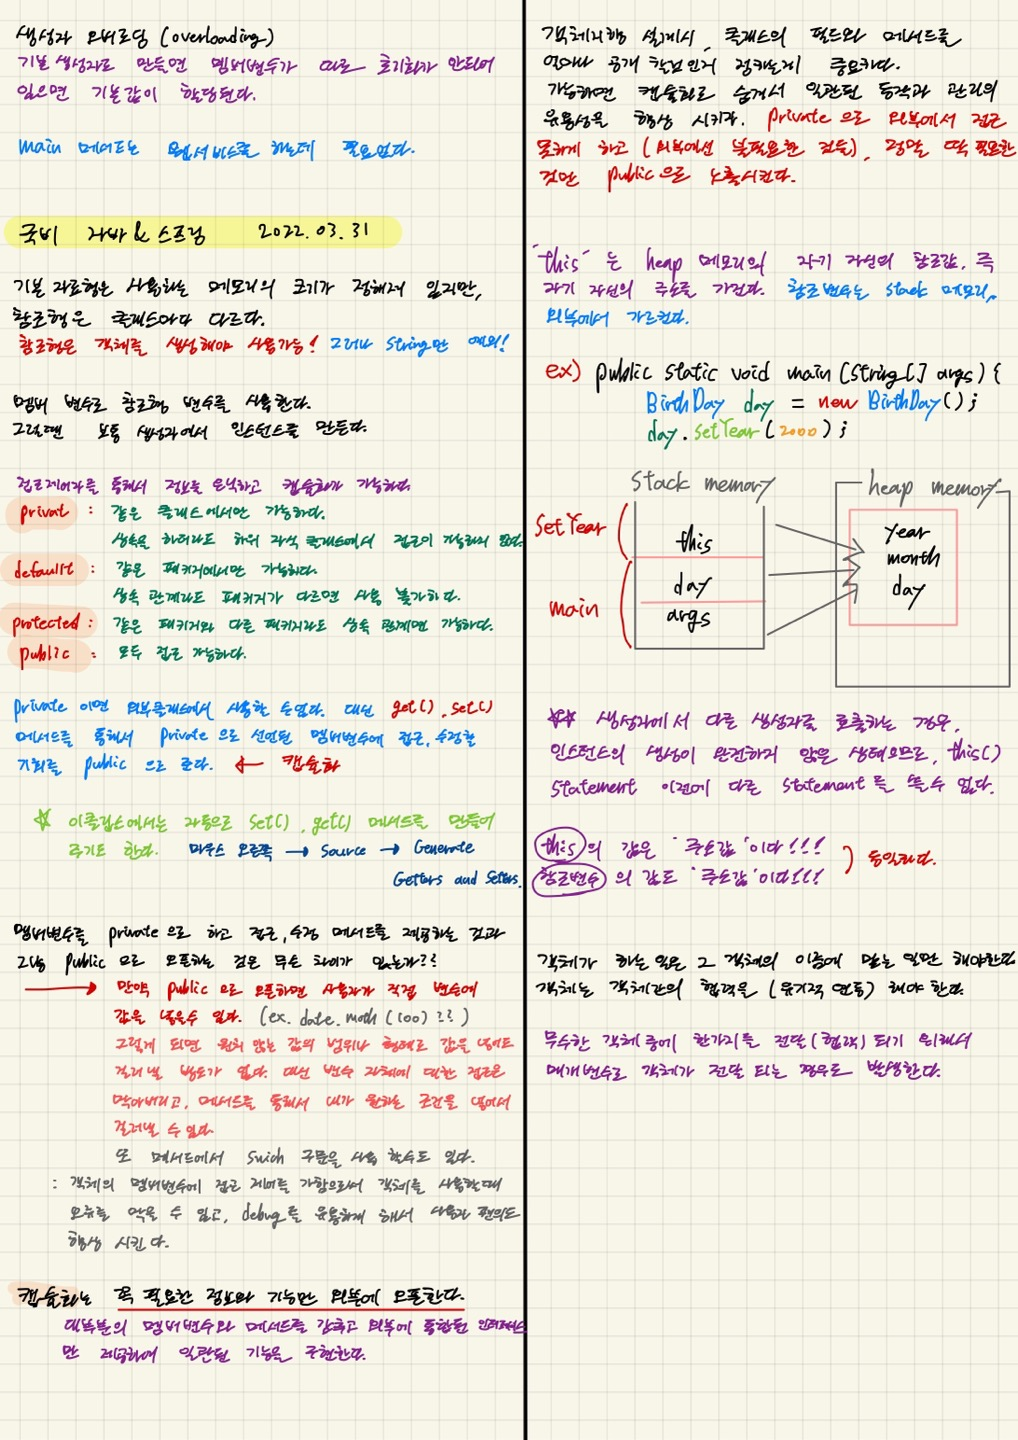 생성자 오버로딩 (overloading)
기본 생성자로 만들면 멤버변수가 따로 초기화가 안되어
있으면 기본값이 할당된다.
main 메서드는 웹서비스를 하는데 필요없다.
국비 자바 & 스프링 2022.03.31
기본 자료형은 사용하는 메모리의 크기가 정해져 있지만,
참조형은 클래스마다 다르다.
참조형은 객체를 생성해야 사용가능! 그러나 String만 예외!
멤버 변수로 참조형 변수를 사용한다.
그럴땐 보통 생성자에서 인스턴트를 만든다.
접근제어자를 통해서 정보를 은닉하고 캡슐화가 가능하다.
privat : 같은 클래스에서만 가능하다.
상속을 하더라도 하위 자식 클래스에서 접근이 가능하지 않다.
default : 같은 패키지에서만 가능하다.
상속 관계라도 패키지가 다르면 사용 불가하다.
protected : 같은 패키지와 다른 패키지라도 상속 관계면 가능하다.
public : 모두 접근 가능하다.
private 이면 외부클래스에서 사용할 수없다. 대신 get(), set()
메서드를 통해서 private 으로 선언된 멤버변수에 접근, 수정할
기회를 public 으로 준다. ← 캡슐화
☆ 이클립스에서는 자동으로 set(), get() 메서드를 만들어
주기도 한다. 마우스 오른쪽 → Source → Generate
Getters and Setters.
멤버변수를 private 으로 하고 접근, 수정 메서드를 제공하는 것과
그냥 public 으로 오픈하는 것은 무슨 차이가 있는가??
→ 만약 public 으로 오픈하면 사용자가 직접 변수에
값을 넣을수 있다. (ex. date.moth (100) ??)
그렇게 되면 원치 않는 값의 범위나 형태로 값을 넣어도
걸러낼 방도가 없다. 대신 변수 자체에 대한 접근은
막아버리고, 메서드를 통해서 내가 원하는 조건을 넣어서
걸러낼 수 있다.
또 메서드에서 swich 구문을 사용 할수도 있다.
: 객체의 멤버변수에 접근 제어를 가함으로서 객체를 사용할때
오류를 막을 수 있고, debug를 유용하게 해서 사용자 편의도
향상 시킨다.
캡슐화는 꼭 필요한 정보와 기능만 외부에 오픈한다.
대부분의 멤버변수와 메서드를 감추고 외부에 통합된 인터페이스
만 제공하여 일관된 기능을 구현한다.
객체지향 설계시, 클래스의 필드와 메서드를
얼마나 공개 할것인지 정하는게 중요하다.
가능하면 캡슐화로 숨겨서 일관된 동작과 관리의
유용성을 향상 시키자. private 으로 외부에서 접근
못하게 하고 (외부에선 불필요한 것들), 정말 딱 필요한
것만 public으로 노출시킨다.
"this" 는 heap 메모리의 자기 자신의 참조값, 즉
자기 자신의 주소를 가진다. 참조변수는 stack 메모리,
외부에서 가르킨다.
ex) public static void main (String[] args) {
BirthDay day = new BirthDay();
day.setYear(2000);
stack memory
heap memory
SetYear
this
main
day
args
year
month
day
☆☆ 생성자에서 다른 생성자를 호출하는 경우,
인스턴스의 생성이 완전하지 않은 상태으므로, this()
statement 이전에 다른 statement를 쓸수 없다.
this의 값은 '주소값'이다!!!
참조변수의 값도 '주소값'이다!!!
) 동일하다.
객체가 하는일은 그 객체의 이름에 맞는 일만 해야한다
객체는 객체간의 협력을 (유기적 연동) 해야 한다.
무수한 객체 중에 한가지를 전달(협력) 되기 위해서
매개변수로 객체가 전달 되는 경우도 발생한다.